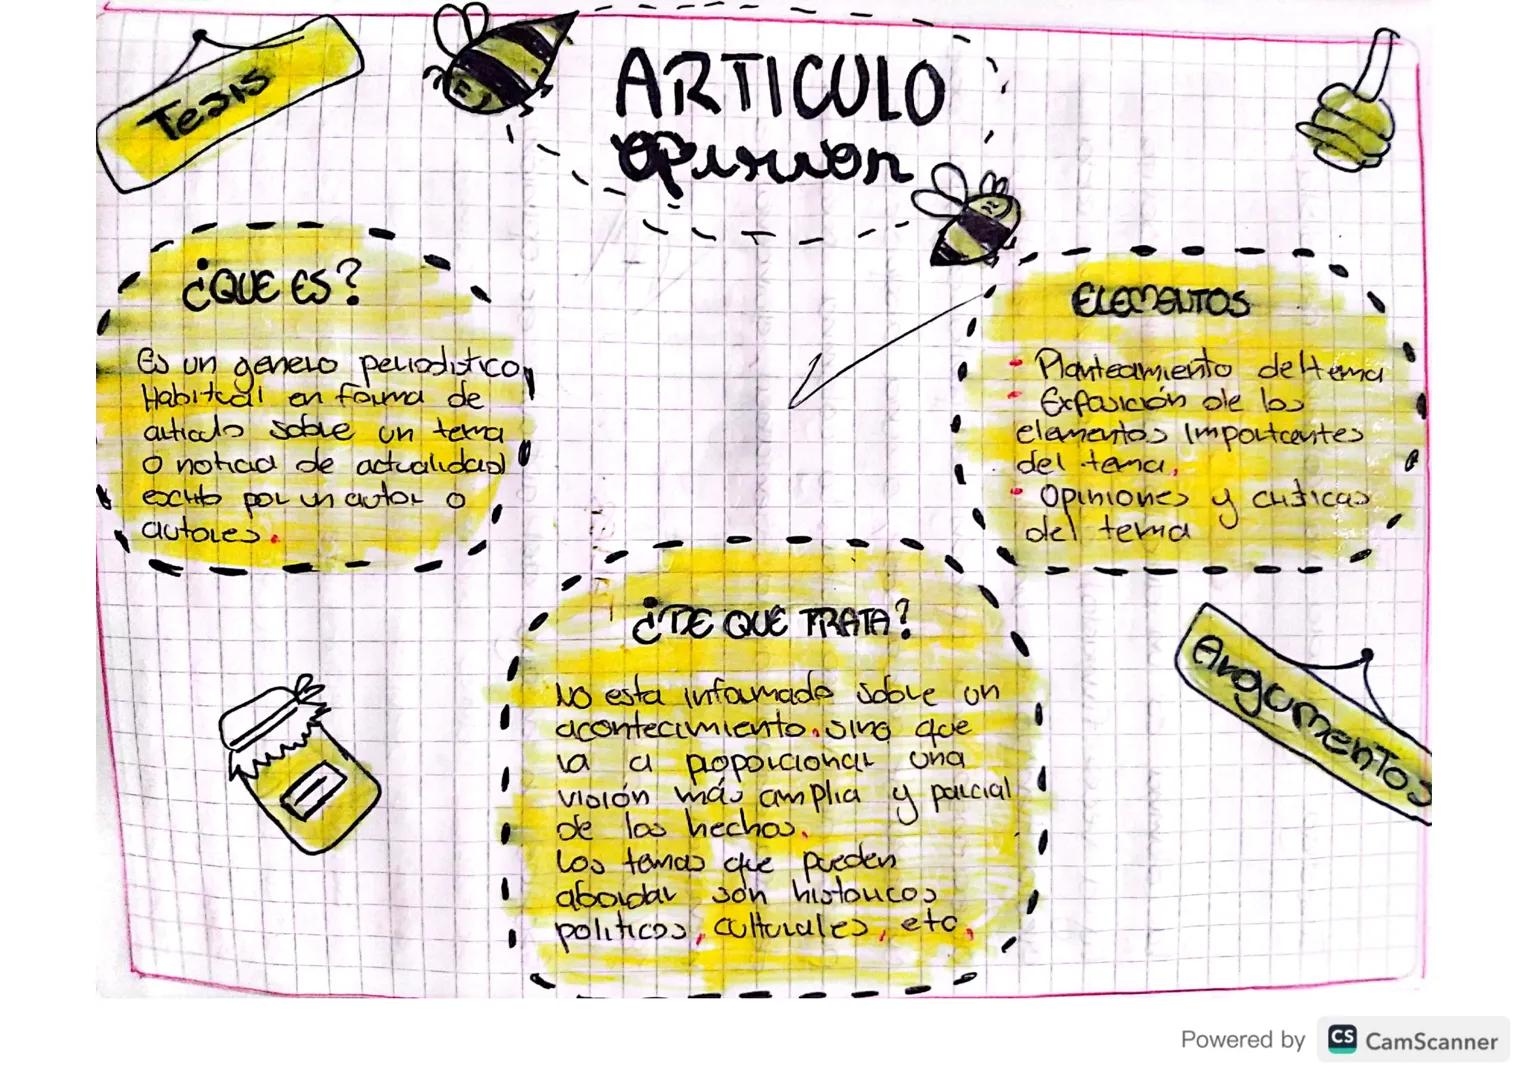 Tesis
ARTICULO
Opinion
¿QUE ES?
Es un genero periodistico,
Habitual en forma de
articulo sobre un tema
o noticia de actualidad
escrito por un autor o
autores.
ELEMENTOS
- Planteamiento del tema
- Exposición de los
elementos importantes
del tema.
- Opiniones y criticas
del tema
¿DE QUE TRATA?
No esta informado sobre un
acontecimiento. sino que
va a proporcionar una
visión más amplia y parcial
de los hechos.
Los temas que pueden
abordar son historicos
politicos, culturales, etc.
Argumentos
Powered by CS CamScanner